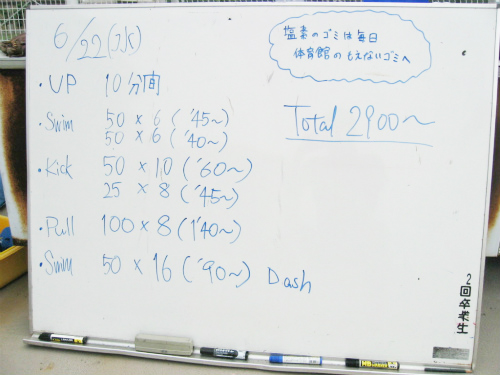 6/22(水)
塩素のゴミは毎日
体育館のもえないゴミへ
・UP 10分間
Total 2900〜
・Swim 50 × 6 ('45〜)
50 × 6 ('40〜)
・Kick 50 × 10 ('60〜)
25 × 8 ('45〜)
・Pull 100 × 8 (1'40〜)
・Swim 50 × 16 ('90〜) Dash